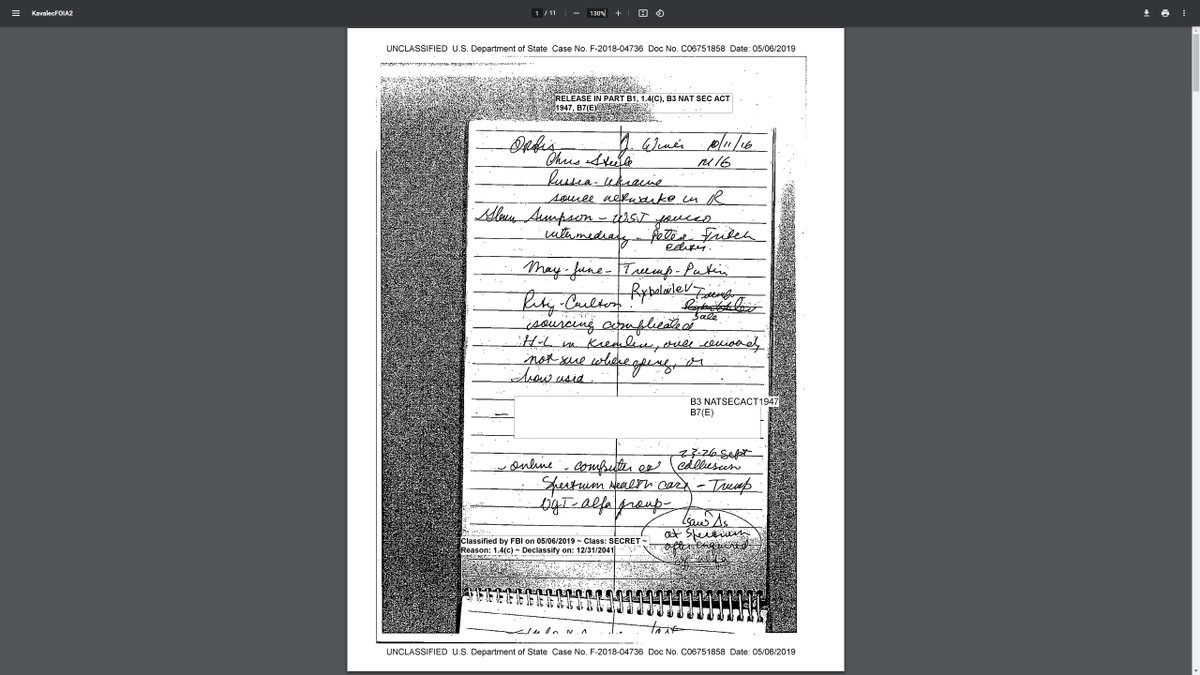 KavalecFOIA2
1 / 11
130%
UNCLASSIFIED U.S. Department of State Case No. F-2018-04736 Doc No. C06751858 Date: 05/06/2019
RELEASE IN PART B1, 1.4(C), B3 NAT SEC ACT
1947, B7(E)
Orbis J. Winer 10/11/16
Chris Steele M16
Russia - Ukraine
source networks in R
Glenn Simpson - WSJ
intermediary - Peter Fritch
editor.
May - June - Trump - Putin
Rybolovlev - Trump
Ritz - Carlton
sale
sourcing complicated
H-L in Kremlin, once removed,
not sure where going, or
how used.
B3 NATSECACT1947
B7(E)
23-26 Sept
- online - computer collusion
Spectrum Health care - Trump
alfa group -
saw Δs
at Spectrum
after inquired
UNCLASSIFIED U.S. Department of State Case No. F-2018-04736 Doc No. C06751858 Date: 05/06/2019
Classified by FBI on 05/06/2019 ~ Class: SECRET ~
Reason: 1.4(c) ~ Declassify on: 12/31/2041